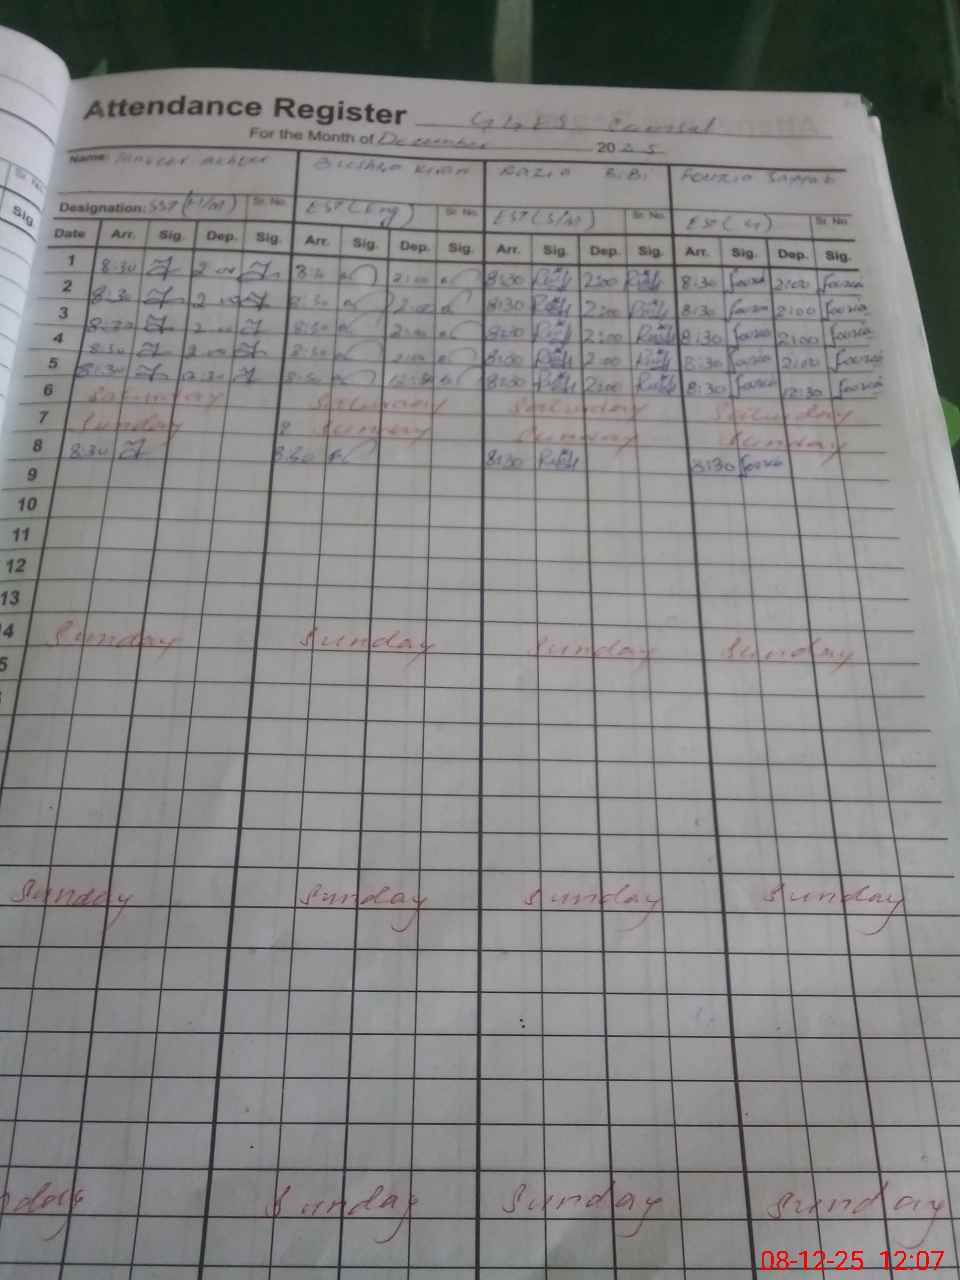 Attendance Register GGES
For the Month of December 2025
Name: Bushra Kiran Razia BiBi Fouzia
Designation: SST (H/M) Sr. No. EST (Eng) Sr. No. EST (S/M) Sr. No. EST Sr. No.
Date Arr. Sig. Dep. Sig. Arr. Sig. Dep. Sig. Arr. Sig. Dep. Sig. Arr. Sig. Dep. Sig.
1 8:30 2:00 8:30 2:00 8:30 2:00 8:30 Fouzia 2:00 Fouzia
2 8:30 2:00 8:30 2:00 8:30 2:00 8:30 Fouzia 2:00 Fouzia
3 8:30 2:00 8:30 2:00 8:30 2:00 8:30 Fouzia 2:00 Fouzia
4 8:30 2:00 8:30 2:00 8:30 2:00 8:30 Fouzia 2:00 Fouzia
5 8:30 12:30 8:30 12:30 8:30 2:00 8:30 Fouzia 12:30 Fouzia
6 Saturday Saturday Saturday Saturday
7 Sunday Sunday Sunday Sunday
8 8:30 8:30 8:30 8:30 Fouzia
9
10
11
12
13
14 Sunday Sunday Sunday Sunday
5
Sunday Sunday Sunday Sunday
nday Sunday Sunday Sunday
08-12-25 12:07